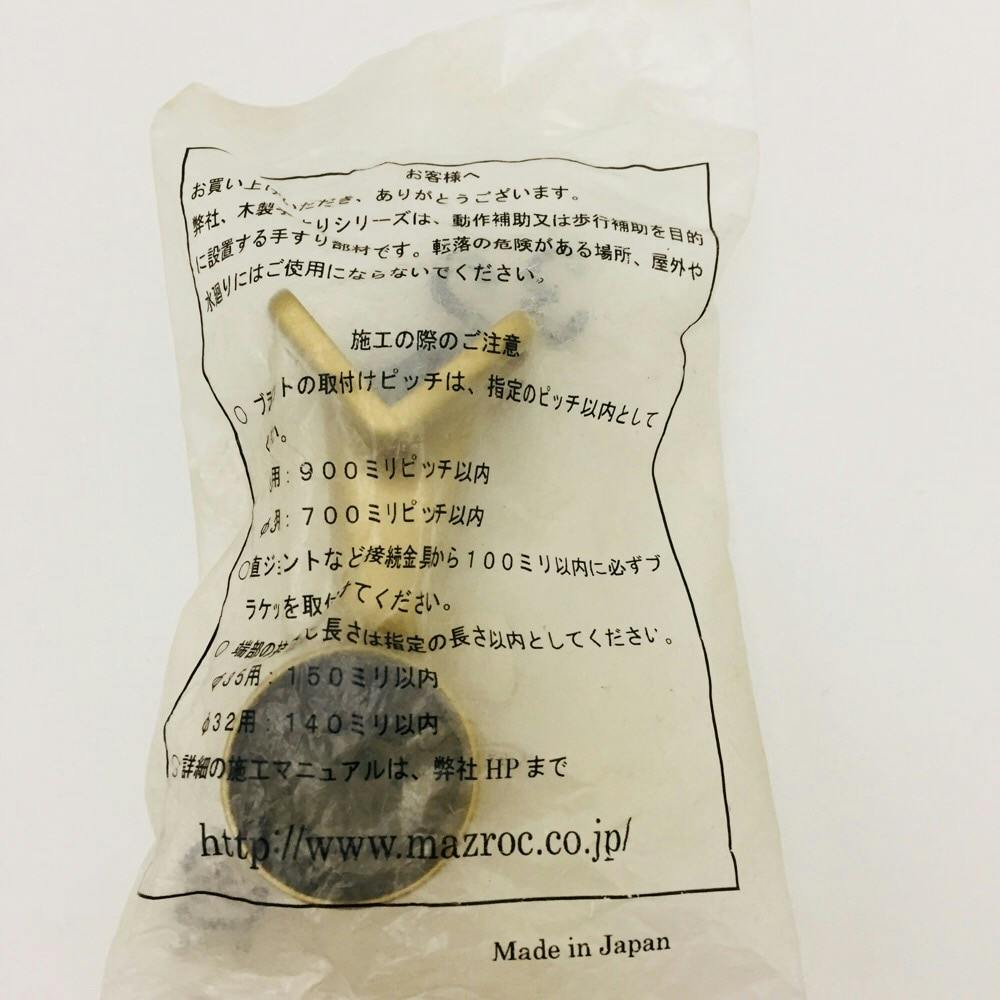 お客様へ
お買い上げいただき、ありがとうございます。
弊社、木製手すりシリーズは、動作補助又は歩行補助を目的
に設置する手すり部材です。転落の危険がある場所、屋外や
水廻りにはご使用にならないでください。
施工の際のご注意
○ ブラ トの取付けピッチは、指定のピッチ以内として
い。
用：900ミリピッチ以内
用：700ミリピッチ以内
○直ジョイントなど接続金具から100ミリ以内に必ずブ
ラケットを取付けてください。
○ 端部の 長さは指定の長さ以内としてください。
φ35用：150ミリ以内
φ32用：140ミリ以内
○詳細の施工マニュアルは、弊社HPまで
http://www.mazroc.co.jp/
Made in Japan